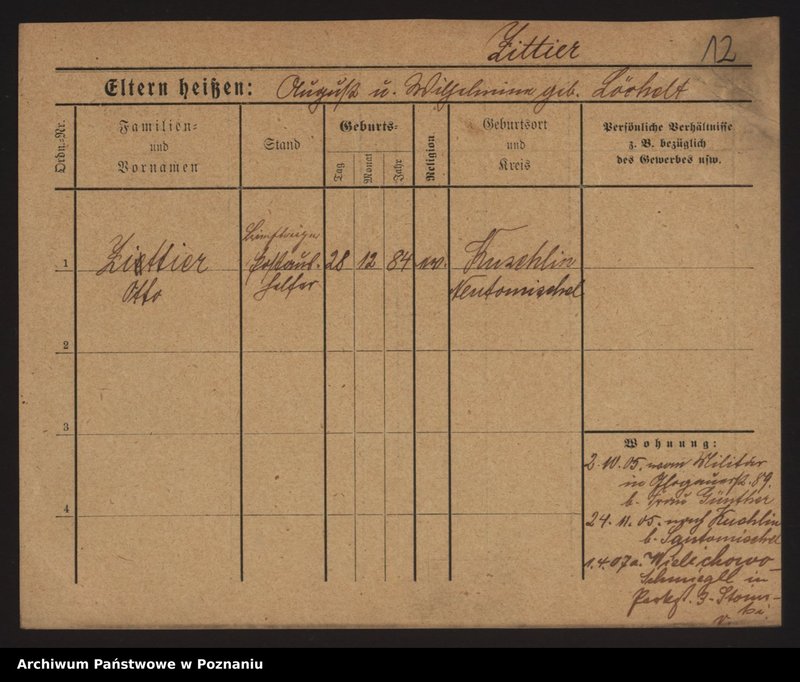 Zittier 12
Eltern heißen: August u. Wilhelmine geb.
Ordn.-Nr.
Familien- und Vornamen
Stand
Geburts-
Tag
Monat
Jahr
Religion
Geburtsort und Kreis
Persönliche Verhältnisse
z. B. bezüglich
des Gewerbes usw.
1 Zittier 28 12 84 ev. Kuschlin
Otto Postaus-
helfer Neutomischel
2
3
4
Wohnung:
2.10.05. vom Militär
in Glogauerst. 89.
b. Frau Günther
24.11.05. nach Kuschlin
b.
1.4.07 a. Wielichowo
Schmiegel in
Parkst. 3
v.
Archiwum Państwowe w Poznaniu